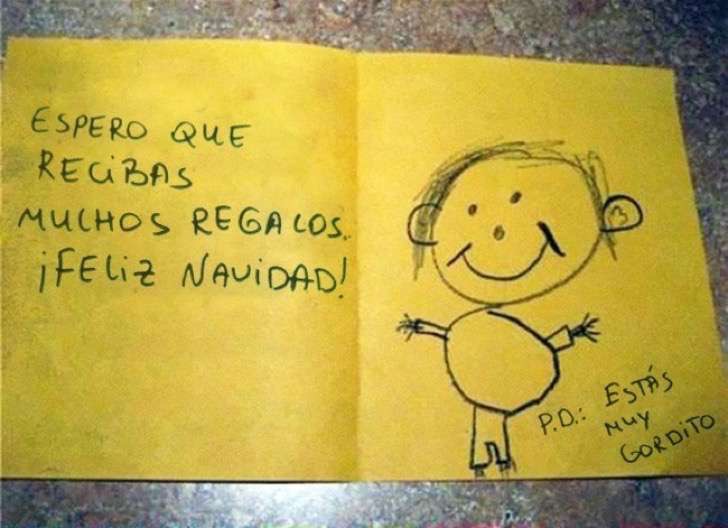 ESPERO QUE
RECIBAS
MUCHOS REGALOS.
¡FELIZ NAVIDAD!
P.D.: ESTÁS
MUY
GORDITO